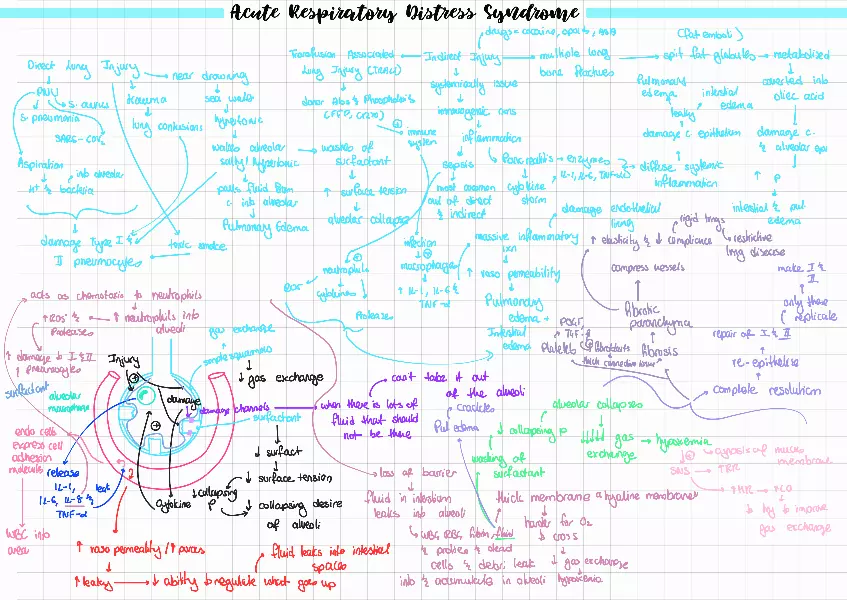 Acute Respiratory Distress Syndrome
Direct Lung Injury
near drowning
PNU
s. aureus
s. pneumonia
SARS-COV
trauma
lung contusions
sea water
hypertonic
Aspiration
H+ & bacteria
into alveolar
water alveolar
salty/hypertonic
pulls fluid from
c into alveolar
Pulmonary Edema
damage Type I &
II pneumocytes
toxic smoke
washes of
surfactant
↑ surface tension
alveolar collapse
Transfusion Associated
Lung Injury (TRALI)
donor Abs & Phospholipids
immune
system
Indirect Injury
drugs = cocaine, opoits, ASA
systemically issue
immunogenic rxns
inflammation
sepsis
most common
out of direct
& indirect
multiple long
bone fractures
(fat emboli)
spit fat globules
metabolized
coverted into
oleic acid
damage c.
& alveolar epi
↑ P
intestial & pul
edema
Pulmonary
edema
intestial
edema
leaky
damage c epithelium
diffuse systemic
inflammation
Pancreatitis → enzymes
↑ IL-1, IL-6, TNF-α
cytokine
storm
damage endothelial
lining
massive inflammatory
rxn
↑ vaso permeability
Pulmonary
edema +
Intestial
edema
infection
macrophages
↑ IL-1, IL-6 &
TNF-α
neutrophils
ROS
cytokines
Proteases
↑ elasticity & ↓ compliance
rigid lungs
restrictive
lung disease
compress vessels
Fibrotic
parenchyma
Fibrosis
PDGF,
TGF-β
Platelets
fibroblasts
thick connective tissue
make I &
II
only these
replicate
repair of I & II
re-epithelize
complete resolution
acts as chemotaxis to neutrophils
↑ ROS &
Proteases
↑ neutrophils into
alveoli
↑ damage ↓ I & II
↑ pneumocytes
surfactant
Injury
alveolar
macrophage
gas exchange
simple squamous
↓ gas exchange
damage
damage channels
surfactant
when there is lots of
fluid that should
not be there
can't take it out
of the alveoli
endo cells
express cell
adhesion
molecules
release
IL-1,
IL-6, IL-8 &
TNF-α
leak
WBC into
area
Cytokine
↓ collapsing
P
↓ surfact
↓ surface tension
↓ collapsing desire
of alveoli
↑ vaso permeability / ↑ pores
↑ leaky
↓ ability ↓ regulate what goes up
fluid leaks into intestial
spaces
crackles
Pul edema
washing of
surfactant
↓ collapsing P
alveolar collapses
↓↓↓↓ gas
exchange
hypoxemia
cyanosis of mucus
membrane
SNS → ↑RR
↑ HR → ↑CO
↓ try ↓ improve
gas exchange
loss of barrier
fluid in intestium
leaks into alveoli
WBC, RBC, fibrin, fluid
& proteins & dead
cells & debri leak
into & accumulate in alveoli
thick membrane = hyaline membrane
harder for O2
↓ cross
↓ gas exchange
hypoxemia